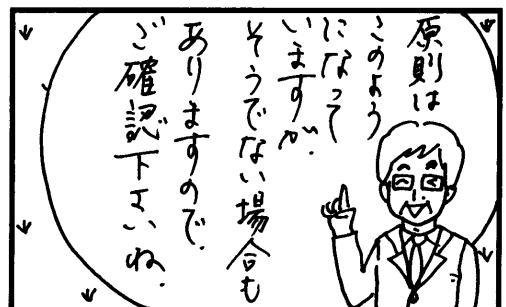 原則は
このよう
になって
いますが、
そうでない場合も
ありますので、
ご確認下さいね.